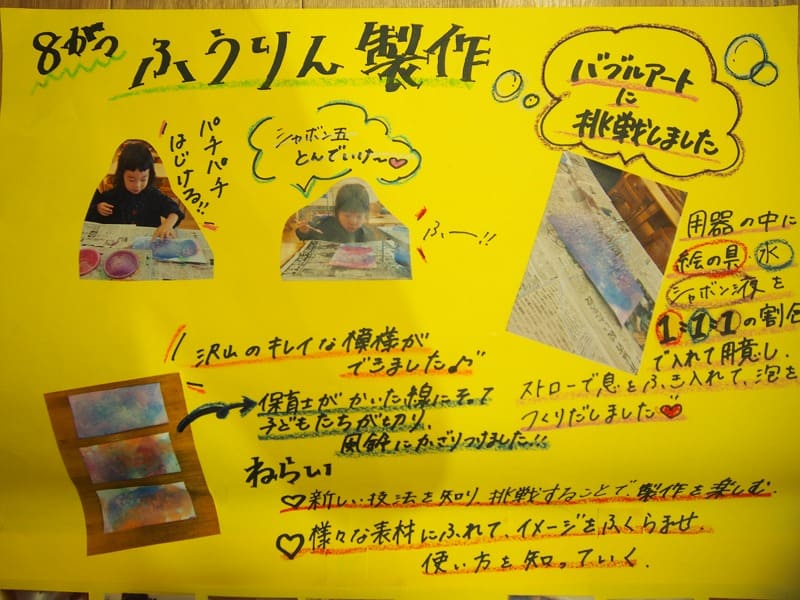 8がつ ふうりん製作
バブルアート
に
挑戦しました
パチパチ
はじける!!
シャボン玉
とんでいけ〜♡
ふー!!
用器の中に
絵の具・水
シャボン液を
1:1:1の割合
で入れて用意し、
ストローで息をふき入れて、泡を
つくりだしました♥
沢山のキレイな模様が
できました♪
保育士がかいた線にそって
子どもたちが切り、
風鈴にかざりつけました!!
ねらい
♡新しい技法を知り、挑戦することで、製作を楽しむ。
♡様々な素材にふれて、イメージをふくらませ、
使い方を知っていく。